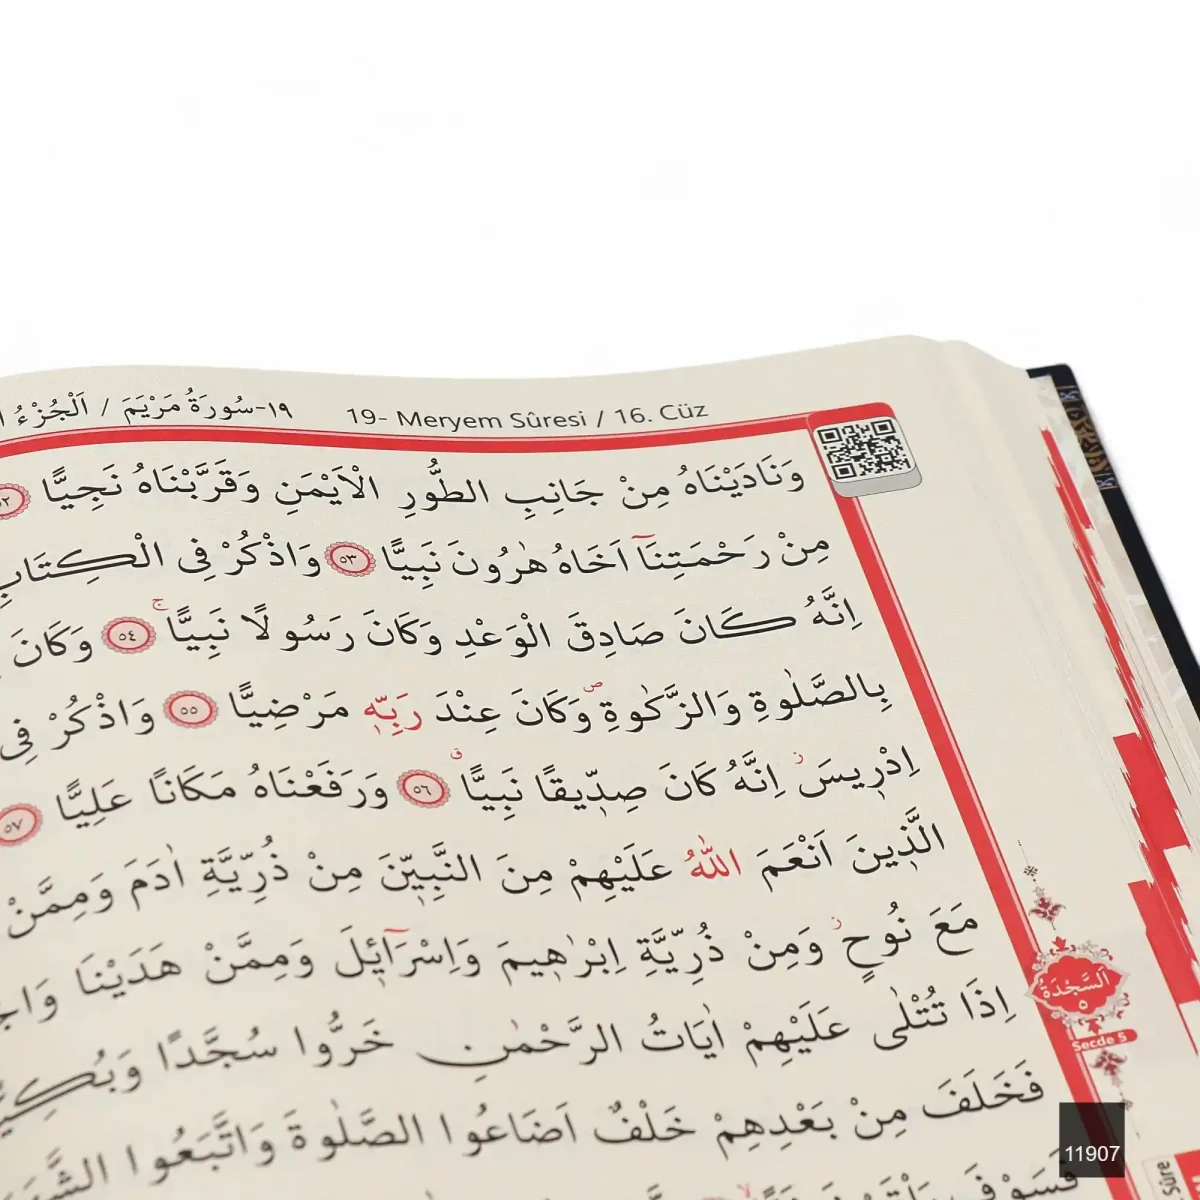 ١٩-سُورَةُ مَرْيَمَ / اَلْجُزْءُ
19- Meryem Sûresi / 16. Cüz
وَنَادَيْنَاهُ مِنْ جَانِبِ الطُّورِ الْاَيْمَنِ وَقَرَّبْنَاهُ نَجِيًّا ٥٢
مِنْ رَحْمَتِنَٓا اَخَاهُ هٰرُونَ نَبِيًّا ٥٣ وَاذْكُرْ فِى الْكِتَابِ
اِنَّهُ كَانَ صَادِقَ الْوَعْدِ وَكَانَ رَسُولًا نَبِيًّاۚ ٥٤ وَكَانَ
بِالصَّلٰوةِ وَالزَّكٰوةِۖ وَكَانَ عِنْدَ رَبِّه۪ مَرْضِيًّا ٥٥ وَاذْكُرْ فِى
اِدْر۪يسَۘ اِنَّهُ كَانَ صِدّ۪يقًا نَبِيًّاۗ ٥٦ وَرَفَعْنَاهُ مَكَانًا عَلِيًّا ٥٧
الَّذ۪ينَ اَنْعَمَ اللّٰهُ عَلَيْهِمْ مِنَ النَّبِيّ۪نَ مِنْ ذُرِّيَّةِ اٰدَمَ وَمِمَّنْ
مَعَ نُوحٍۘ وَمِنْ ذُرِّيَّةِ اِبْرٰه۪يمَ وَاِسْرَٓائ۪لَ وَمِمَّنْ هَدَيْنَا
اِذَا تُتْلٰى عَلَيْهِمْ اٰيَاتُ الرَّحْمٰنِ خَرُّوا سُجَّدًا
فَخَلَفَ مِنْ بَعْدِهِمْ خَلْفٌ اَضَاعُوا الصَّلٰوةَ وَاتَّبَعُوا
اَلسَّجْدَةُ
٥
Secde 5
Sûre
11907